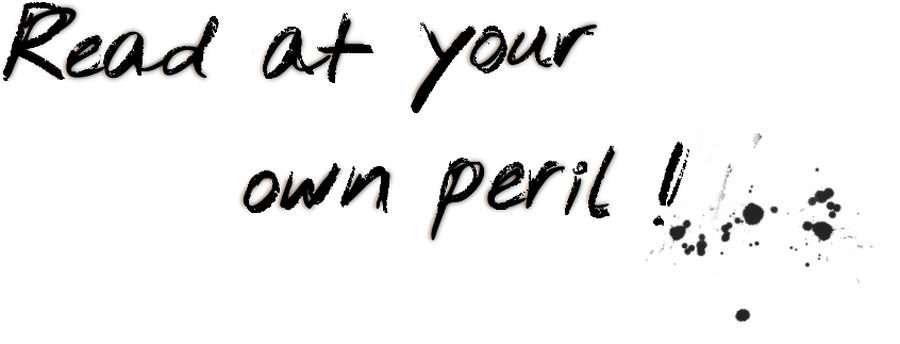 Read at your
own peril !